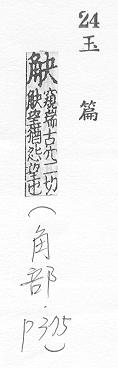 24
玉篇
觖 窺瑞古穴二切觖望猶怨望也
(角部·P315)